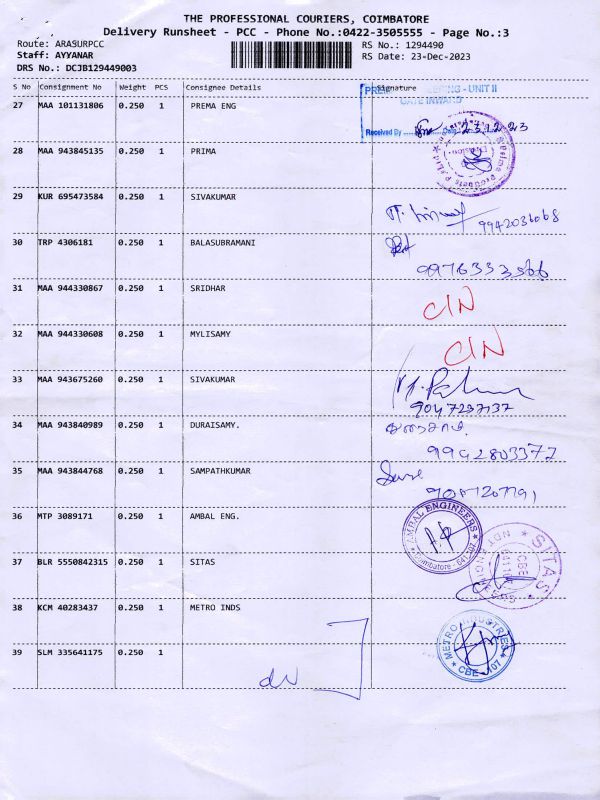 THE PROFESSIONAL COURIERS, COIMBATORE
Delivery Runsheet - PCC - Phone No.:0422-3505555 - Page No.:3
Route: ARASURPCC
Staff: AYYANAR
DRS No.: DCJB129449003
RS No.: 1294490
RS Date: 23-Dec-2023
S No Consignment No Weight PCS Consignee Details Signature
27 MAA 101131806 0.250 1 PREMA ENG
- UNIT II
DATE INWARD
Received By
23 12 23
28 MAA 943845135 0.250 1 PRIMA
29 KUR 695473584 0.250 1 SIVAKUMAR
9942036068
30 TRP 4306181 0.250 1 BALASUBRAMANI
9976333566
31 MAA 944330867 0.250 1 SRIDHAR
C/N
32 MAA 944330608 0.250 1 MYLISAMY
C/N
33 MAA 943675260 0.250 1 SIVAKUMAR
9047237137
34 MAA 943840989 0.250 1 DURAISAMY.
துரைசாமி
9942803372
35 MAA 943844768 0.250 1 SAMPATHKUMAR
36 MTP 3089171 0.250 1 AMBAL ENG.
AMBAL ENGINEERS
Coimbatore - 641 407
37 BLR 5550842315 0.250 1 SITAS
SITAS
NDT ENGINEERS
CBE
38 KCM 40283437 0.250 1 METRO INDS
METRO INDUSTRIES
CBE - 407
39 SLM 335641175 0.250 1